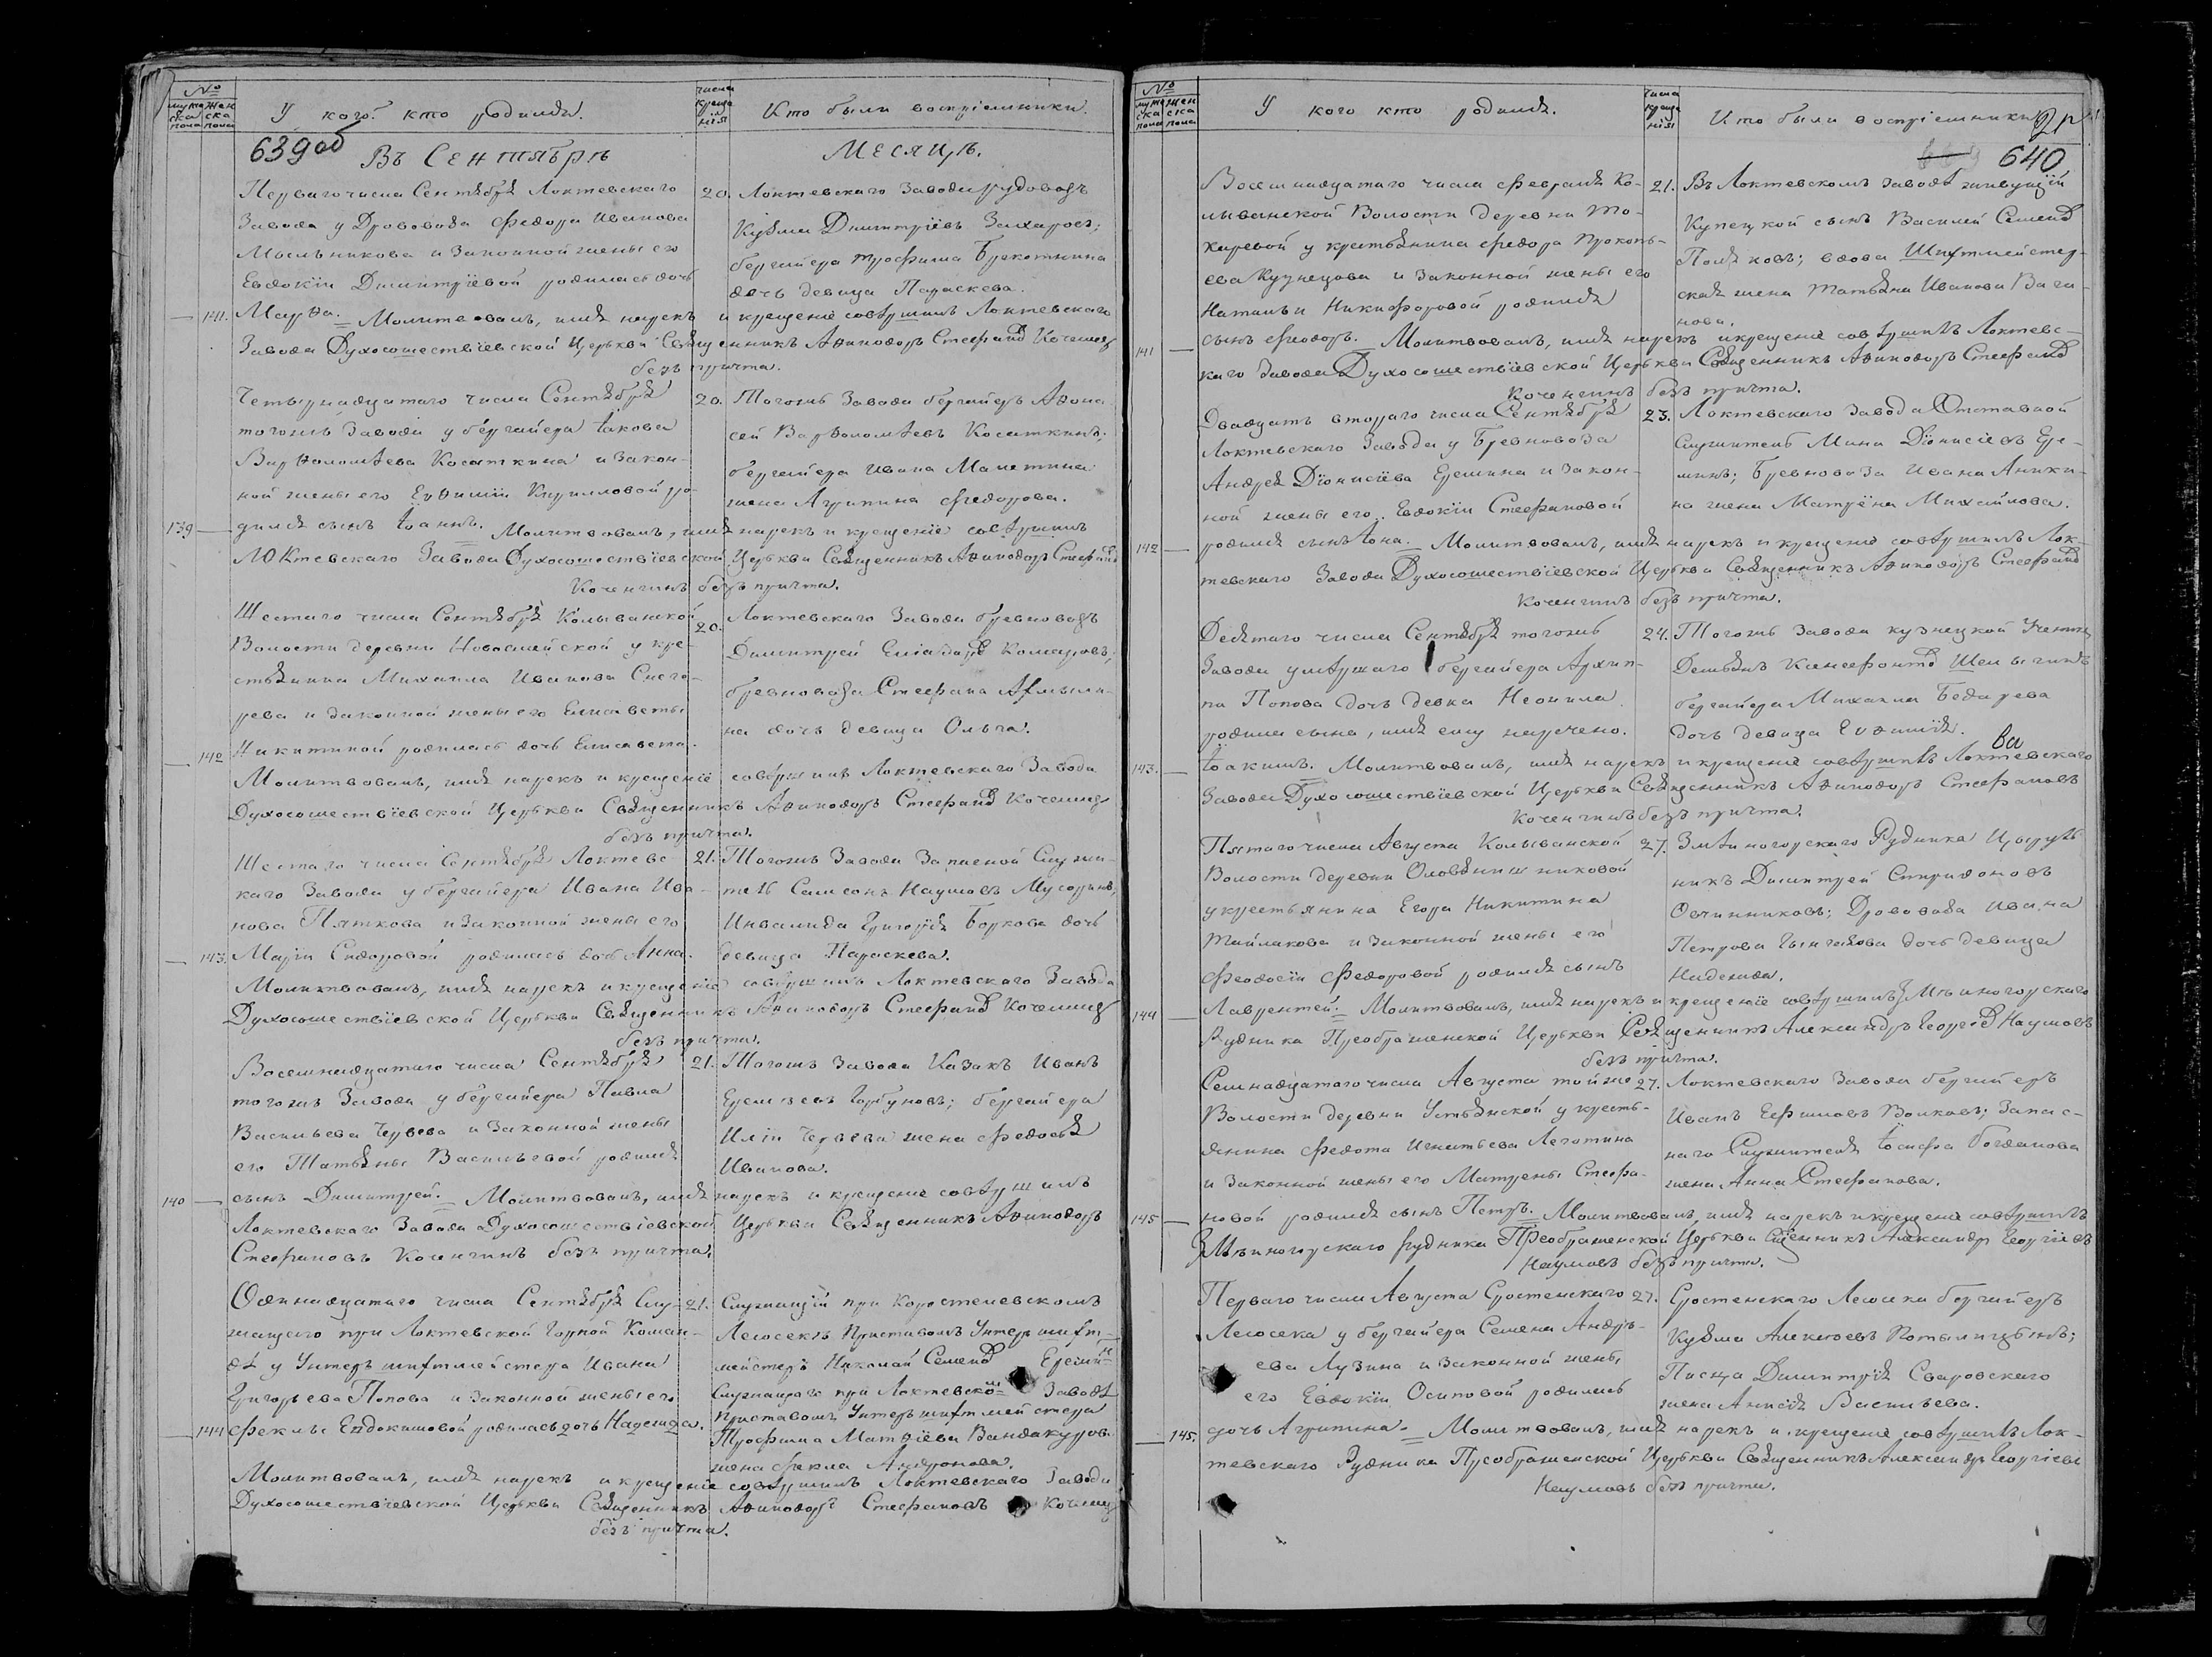 №
муже ска пола
жен ска пола
У кого кто родился.
числа креще нія
Кто были воспріемники.
639 об
Въ Сентябрѣ
Месяцѣ.
Перваго числа Сентября Локтевскаго
Завода у Дрововоза Федора Иванова
Мыльникова и Законной жены его
Евдокіи Димитріевой родилась дочь
141. Марѳа. Молитвовалъ, имя нарекъ и крещеніе совершилъ Локтевскаго
Завода Духосошествіевской Церькви Священникъ Аѳинодоръ Стефанов Коченгин
безъ причта.
20. Локтевскаго Завода рудовозъ
Кузма Димитріевъ Захаровъ;
бергайера Трофима
дочь девица Параскева.
Четырнадцатаго числа Сентября
тогожъ Завода у бергайера Іакова
Варѳоломѣева Косаткина и Закон-
ной жены его Евѳиміи Кирилловой ро-
139 дился сынъ Іоаннъ. Молитвовалъ, имя нарекъ и крещеніе совершилъ
Локтевскаго Завода Духосошествіевской Церькви Священникъ Аѳинодоръ Стефанов
Коченгинъ безъ причта.
20. Тогожъ Завода бергайеръ Аѳона
сей Варѳоломѣевъ Косаткинъ;
бергайера Ивана
жена Агрипина Федорова.
Шестаго числа Сентября Колыванской
Волости деревни Новоалейской у кре-
стьянина Михаила Иванова Снего-
рева и Законной жены его Елисаветы
142 Никитиной родилась дочь Елисавета.
Молитвовалъ, имя нарекъ и крещеніе совершилъ Локтевскаго Завода
Духосошествіевской Церькви Священникъ Аѳинодоръ Стефанов Коченгин
безъ причта.
20. Локтевскаго Завода бревновозъ
Димитрей Комаровъ;
бревновоза Стефана
на дочь девица Ольга.
Шестаго числа Сентября Локтевс
каго Завода у бергайера Ивана Ива-
нова Пяткова и Законной жены его
143. Маріи Сидоровой родилась дочь Анна.
Молитвовалъ, имя нарекъ и крещеніе совершилъ Локтевскаго Завода
Духосошествіевской Церькви Священникъ Аѳинодоръ Стефанов Коченгин
безъ причта.
21. Тогожъ Завода Запасной Служи-
тель Самсонъ Наумовъ Мусоринъ;
Инвалида Григорія Боркова дочь
девица Параскева.
Восемнадцатаго числа Сентября
тогожъ Завода у бергайера Павла
Васильева Червева и Законной жены
его Татьяны Васильевой родился
140 сынъ Димитрей. Молитвовалъ, имя нарекъ и крещеніе совершилъ
Локтевскаго Завода Духосошествіевской Церькви Священникъ Аѳинодоръ
Стефановъ Коченгинъ безъ причта.
21. Тогожъ Завода Казакъ Иванъ
Еремѣевъ Горбуновъ; бергайера
Иліи Червева жена Федосья
Иванова.
Одинадцатаго числа Сентября Слу-
жащего при Локтевской Горной Коман-
дѣ у Унтеръ шихтмейстера Ивана
Григорьева Попова и Законной жены его
144 Феклы Евдокимовой родилась дочь Надежда.
Молитвовалъ, имя нарекъ и крещеніе совершилъ Локтевскаго Завода
Духосошествіевской Церькви Священникъ Аѳинодоръ Стефановъ Коченг
безъ причта.
21. Служащій при Коростелевскомъ
Лесосекѣ Приставомъ Унтеръ шихт-
мейстеръ Николай Семенов
Служащаго при Локтевскомъ Заводѣ
Приставомъ Унтеръ шихтмейстера
Трофима Матѳіева Вандакурова
жена Фекла Андронова.
№
муже ска пола
жен ска пола
У кого кто родился.
числа креще нія
Кто были воспріемники
640
Восемнадцатаго числа февраля Ко-
лыванской Волости деревни То-
каревой у крестьянина Федора Прокопь-
ева Кузнецова и Законной жены его
Натальи Никифоровой родился
141 сынъ Феодоръ. Молитвовалъ, имя нарекъ и крещеніе совершилъ Локтевс-
каго Завода Духосошествіевской Церькви Священникъ Аѳинодоръ Стефанов
Коченгинъ безъ причта.
21. Въ Локтевскомъ Заводѣ живущій
Купецкой сынъ Василей Семенов
Поляковъ; вдова Шихтмейстер-
ская жена Татьяна Иванова Вага-
нова.
Двадцать втораго числа Сентября
Локтевскаго Завода у Бревновоза
Андрея Діонисіева Еремина и Закон-
ной жены его Евдокіи Стефановой
142 родился сынъ Іона. Молитвовалъ, имя нарекъ и крещеніе совершилъ Лок-
тевскаго Завода Духосошествіевской Церькви Священникъ Аѳинодоръ Стефанов
Коченгинъ безъ причта.
23. Локтевскаго Завода Отставной
Служитель Мина Діонисіевъ Ере-
минъ; Бревновоза Ивана Аники-
на жена Матрёна Михайлова.
Десятаго числа Сентября тогожъ
Завода умершаго бергайера Архип-
па Попова дочь девка Неонила
родила сына, имя ему наречено.
143. Іоакимъ. Молитвовалъ, имя нарекъ и крещеніе совершилъ Локтевскаго
Завода Духосошествіевской Церькви Священникъ Аѳинодоръ Стефановъ
Коченгинъ безъ причта.
24. Тогожъ Завода кузнецкой Ученик
Демьянъ Ксенофонтов
бергайера Михаила Бедарева
дочь девица Евѳимія.
Пятаго числа Августа Колыванской
Волости деревни Оловянишниковой
у крестьянина Егора Никитина
Тайлакова и Законной жены его
Феодосіи Федоровой родился сынъ
144 Лаврентей. Молитвовалъ, имя нарекъ и крещеніе совершилъ Змѣиногорскаго
Рудника Преображенской Церькви Священникъ Александръ Георгіев Наумовъ
безъ причта.
27. Змѣиногорскаго Рудника Цырул
никъ Димитрей Спиридоновъ
Овчинниковъ; Дрововоза Ивана
Петрова дочь девица
Надежда.
Семнадцатаго числа Августа той же
Волости деревни Устьянской у кресть-
янина Федота Игнатьева Леготина
и Законной жены его Матрены Стефа-
145 новой родился сынъ Петръ. Молитвовалъ, имя нарекъ и крещеніе совершилъ
Змѣиногорскаго рудника Преображенской Церькви Священникъ Александръ Георгіевъ
Наумовъ безъ причта.
27. Локтевскаго Завода бергайеръ
Иванъ Ефимовъ Волковъ; Запас-
наго Служителя Іосифа Богданова
жена Анна Стефанова.
Перваго числа Августа Сростенскаго
Лесосека у бергайера Семена Андрѣ-
ева Лузина и Законной жены
его Евдокіи Осиповой родилась
145. дочь Агрипина. Молитвовалъ, имя нарекъ и крещеніе совершилъ Лок-
тевскаго Рудника Преображенской Церькви Священникъ Александръ Георгіевъ
Наумовъ безъ причта.
27. Сростенскаго Лесосека бергайеръ
Кузма Алексѣевъ Потылицынъ;
Писца Димитрія Сваровскаго
жена Анисія Васильева.